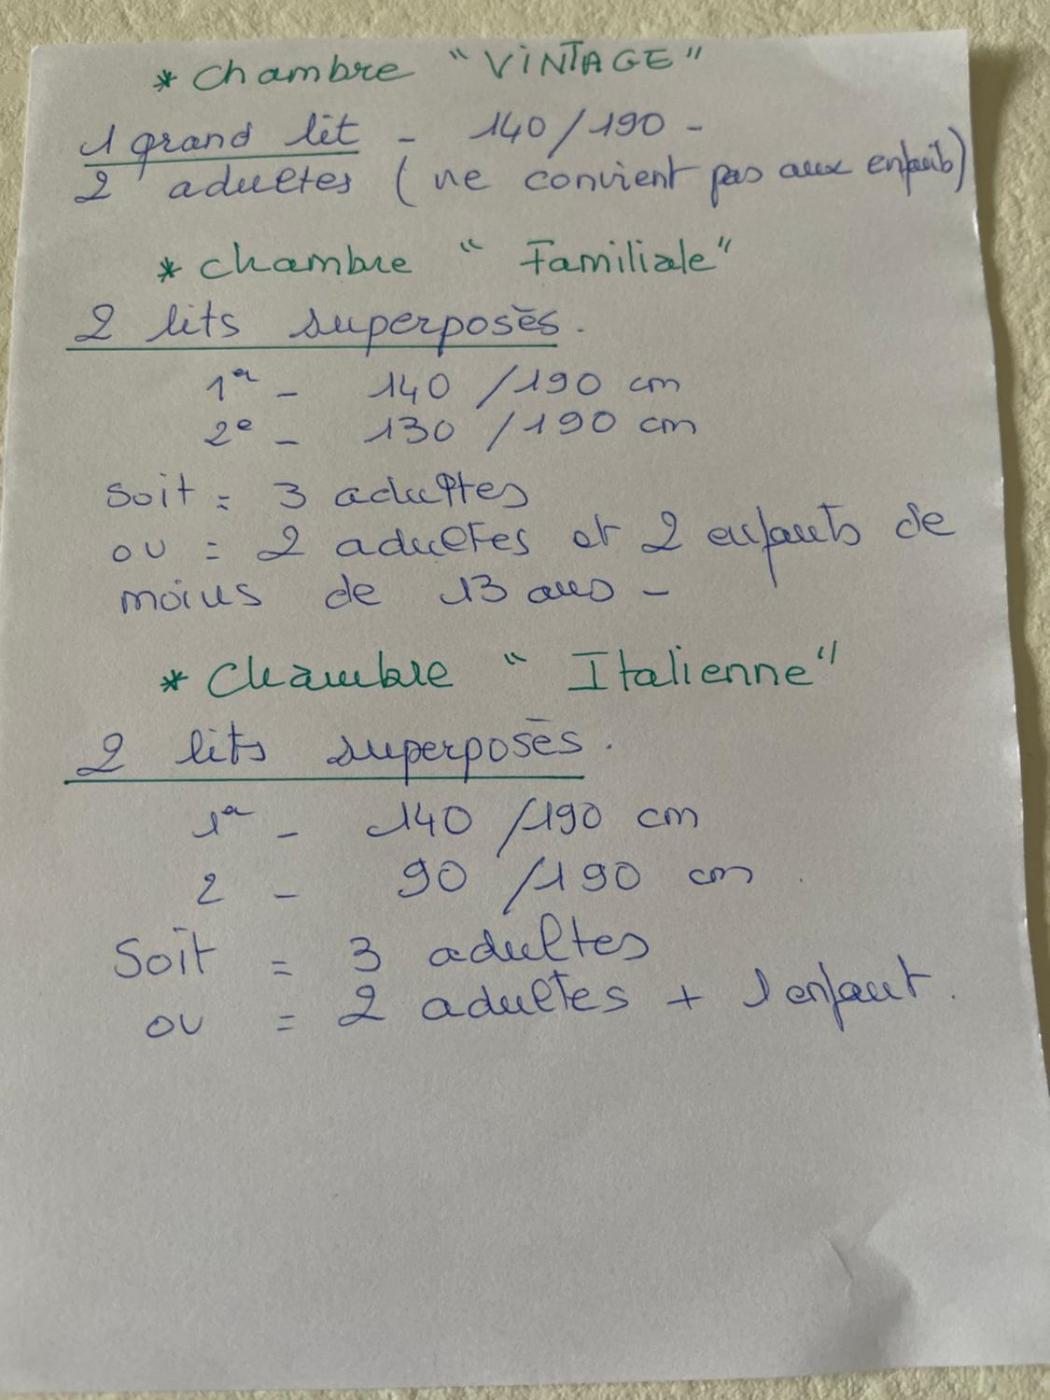 * Chambre "VINTAGE"
1 grand lit - 140/190 -
2 adultes (ne convient pas aux enfants)
* Chambre "Familiale"
2 lits superposés.
1er - 140/190 cm
2e - 130/190 cm
soit = 3 adultes
ou = 2 adultes et 2 enfants de
moins de 13 ans -
* Chambre "Italienne"
2 lits superposés.
1er - 140/190 cm
2 - 90/190 cm
Soit = 3 adultes
ou = 2 adultes + 1 enfant.